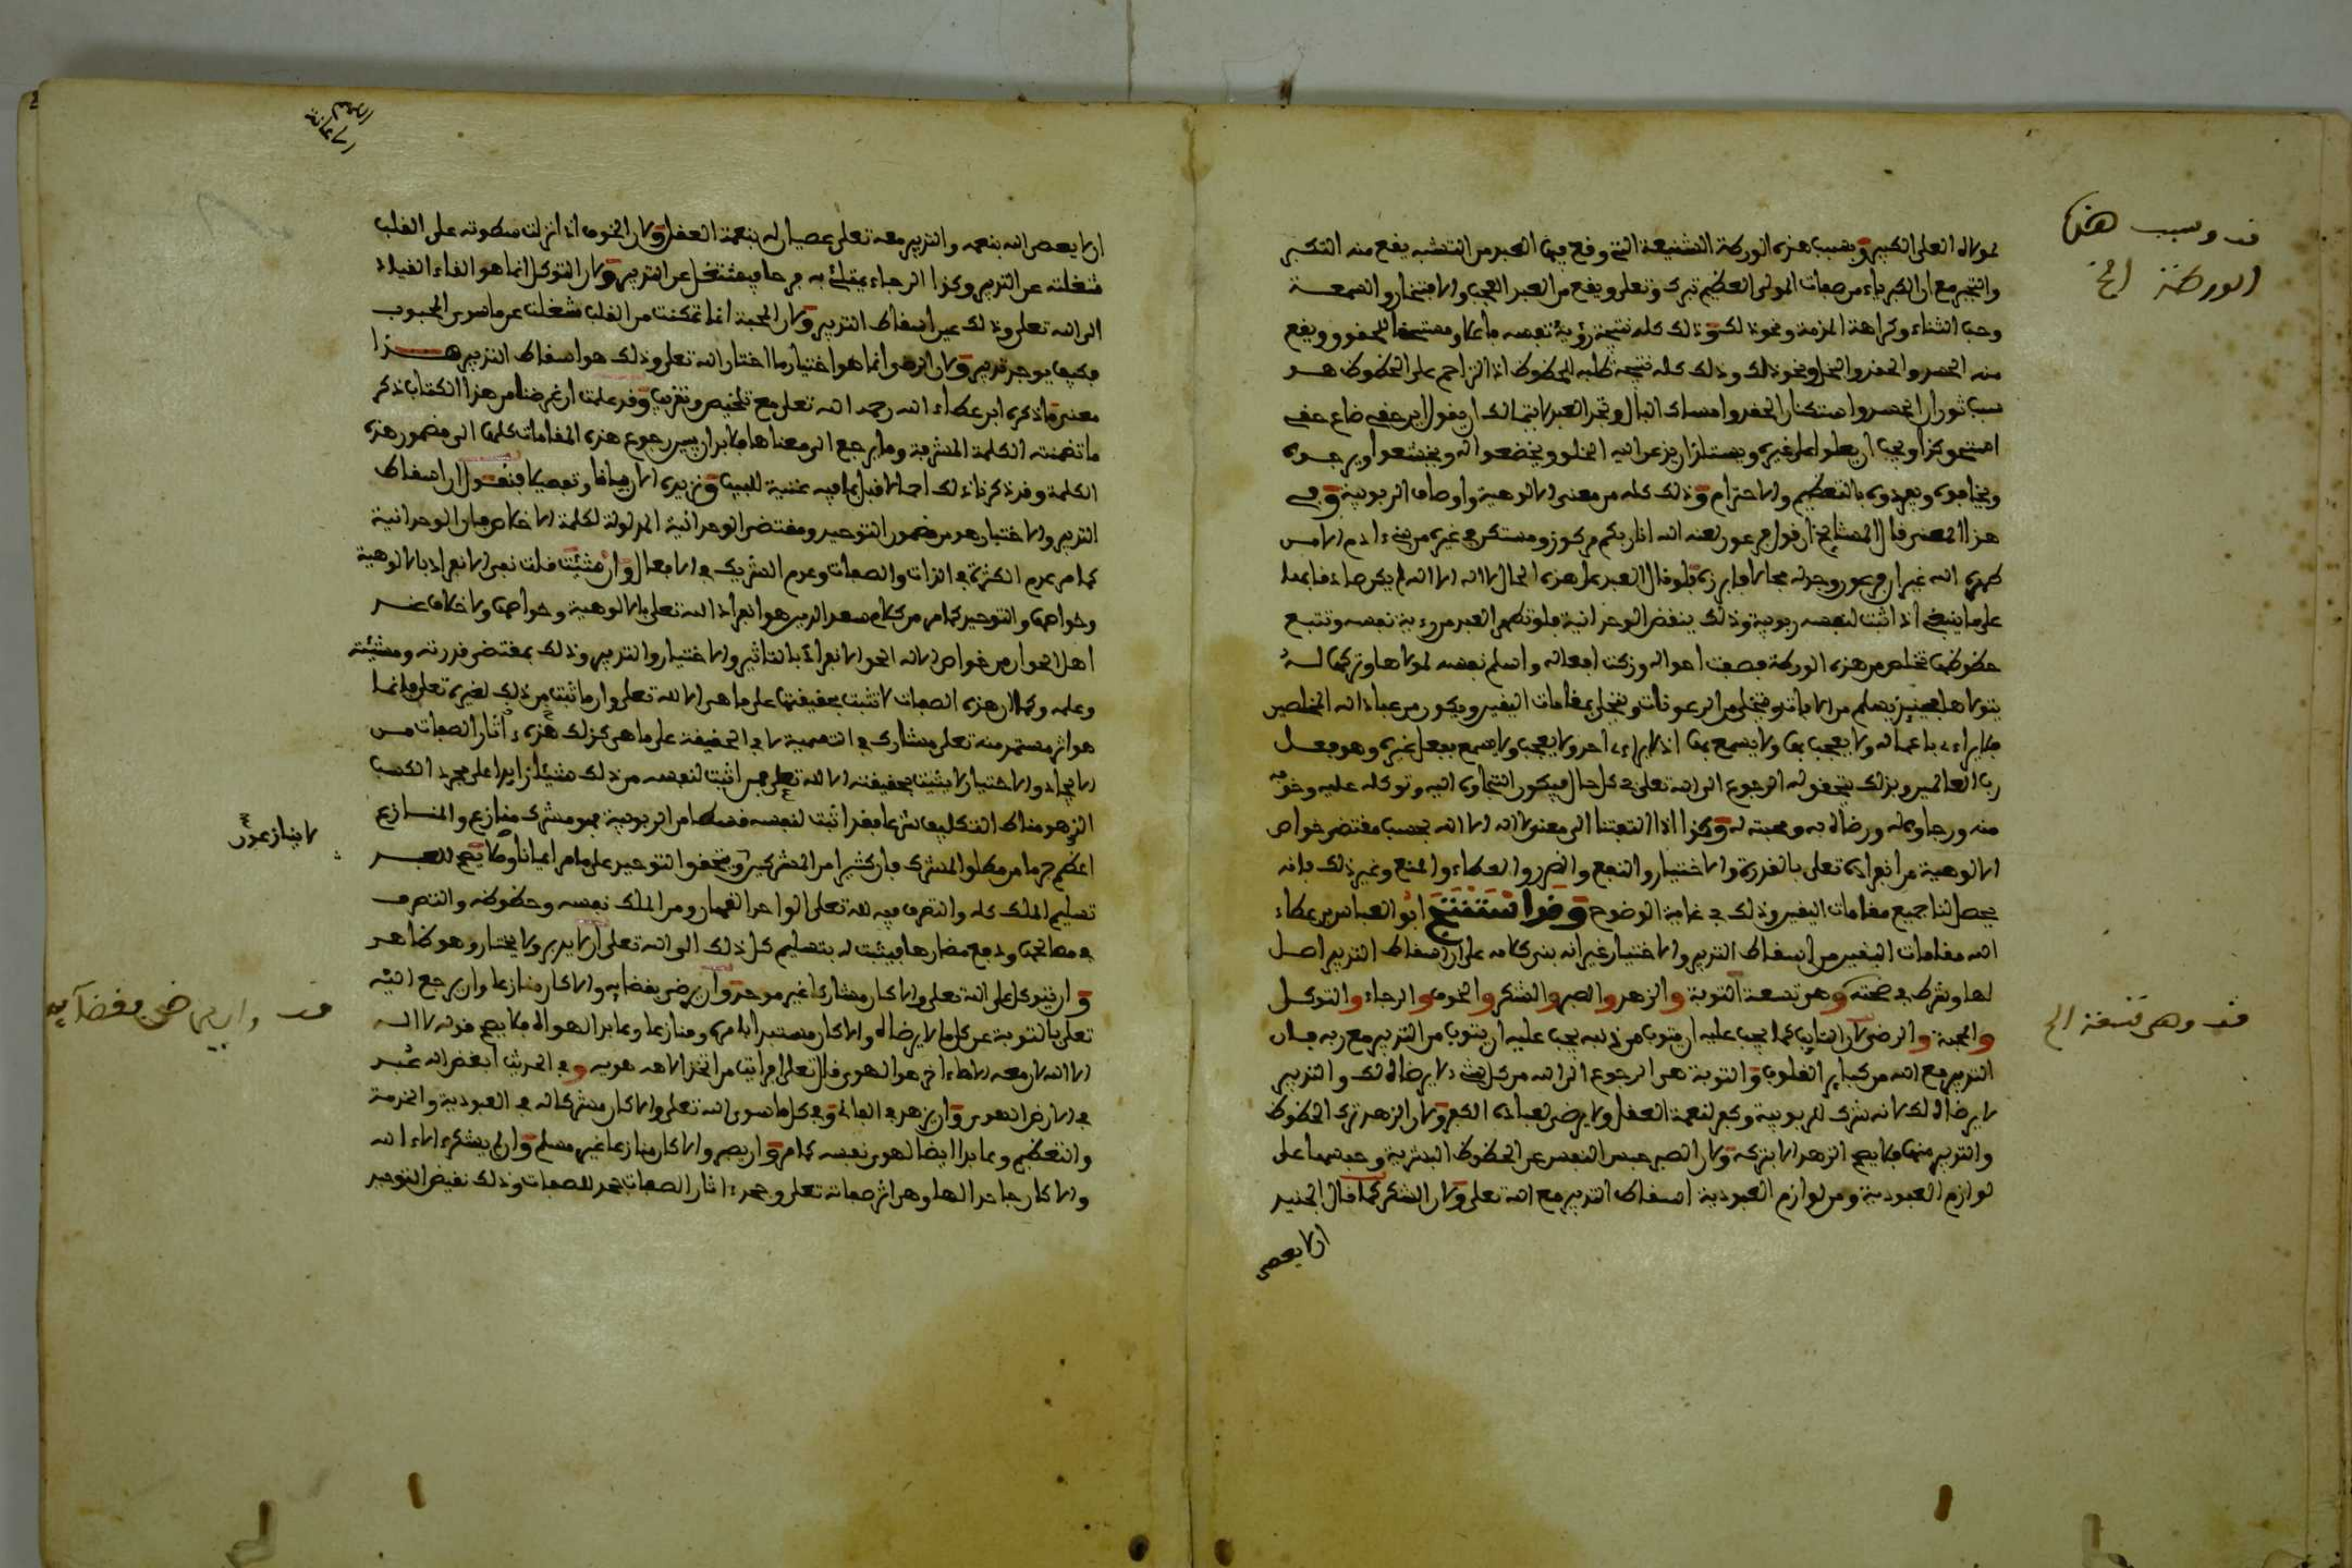 لمولاه العلي الكبير وبسبب هذه الورطة الشنيعة التي وقع فيها العبد من التشبه يقع منه التكبر
والتجبر مع ان الكبرياء من صفات المولى العظيم تبرك وتعلى ويقع من العبد العجب والافتخار والسمعة
وحب الثناء وكراهة المذمة ونحو ذلك وذلك كله نتيجة رؤية نفسه فاعلا ومستحقا للحقوق ويقع
منه الحسد والحقد والبخل ونحو ذلك وذلك كله نتيجة طلبه الحظوظ اذ التزاحم على الحظوظ هو
سبب ثوران الحسد واستكنان الحقد وامساك المال وتجد العبد لا يتمالك ان يقول اين حقي ضاع حقي
استحق كذا ويحب ان يعلوا على غيره ويستلذ ان يذعن اليه الخلق ويخضعوا له ويخشعوا ويرجوه
ويخافوه ويفردوه بالتعظيم والاحترام وذلك كله من معنى الالوهية واوصاف الربوبية وفي
هذا المعنى قال المشايخ ان قول فرعون لعنه الله انا ربكم مركوز ومستكن في غيره من بني ادم الا من
طهره الله غير ان فرعون وجد له مجالا فابرزه فلو قال العبد على هذه الحال لا اله الا الله لم يكن صادقا بها
على ما ينبغي اذ اثبت لنفسه ربوبية وذلك ينقض الوحدانية فلو تطهر العبد من رؤية نفسه وتتبع
حظوظها تخلص من هذه الورطة فصفت احواله وزكت افعاله واسلم نفسه لمولاها وتركها له
يتولاها فحينئذ يسلم من الافات ويتخلى من الرعونات ويتحلى بمقامات اليقين ويكون من عباد الله المخلصين
فلا يراءي باعماله ولا يعجب بها ولا يسمع بها اذ لا يراءي احد ولا يعجب ولا يسمع بفعل غيره وهو فعل
رب العالمين وبذلك يتحقق له الرجوع الى الله تعلى في كل حال فيكون التجاؤه اليه وتوكله عليه وخوفه
منه ورجاؤه له ورضاه به ومحبته له وكذا اذا التفتنا الى معنى لا اله الا الله بحسب مقتضى خواص
الالوهية من انفراده تعلى بالقدرة والاختيار والنفع والضر والعطاء والمنع وغير ذلك فانه
يحصل لنا جميع مقامات اليقين وذلك في غاية الوضوح وقد استفتح ابو العباس بن عطاء
الله مقامات اليقين من اسقاط التدبير والاختيار غير انه بنى كلامه على ان اسقاط التدبير اصل
لها وشرط في صحته وهو تسعة التوبة والزهد والصبر والشكر والخوف والرجاء والتوكل
والمحبة والرضى لان التايب كما يجب عليه ان يتوب من ذنبه يجب عليه ان يتوب من التدبير مع ربه فان
التدبير مع الله من كبائر القلوب والتوبة هي الرجوع الى الله من كل شيء لا يرضاه لك والتدبير
لا يرضاه لك لانه شرك للربوبية وكفر لنعمة العقل ولا يرضى لعباده الكفر ولان الزهد ترك الحظوظ
والتدبير منها فلا يصح الزهد الا بتركه ولان الصبر حبس النفس عن الحظوظ البشرية وحبسها على
لوازم العبودية ومن لوازم العبودية اسقاط التدبير مع الله تعلى ولان الشكر كما قال الجنيد
ان لا يعصى
قف وسبب هذه
الورطة الخ
قف وهي تسعة الخ
ان لا يعصى الله بنعمه والتدبير معه تعلى عصيان له بنعمة العقل ولان الخوف اذا نزلت سطوته على القلب
شغلته عن التدبير وكذا الرجاء يمتلئ به فرحا فيشتغل عن التدبير ولان التوكل انما هو القاء القياد
الى الله تعلى وذلك عين اسقاط التدبير ولان المحبة اذا تمكنت من القلب شغلت عن ما سوى المحبوب
فكيف يوجد تدبير ولان الرضى انما هو اختيار ما اختار الله تعلى وذلك هو اسقاط التدبير هذا
معنى ما ذكره ابن عطاء الله رحمه الله تعلى مع تلخيص وتقريب وقد علمت ان غرضنا من هذا الكتاب ذكر
ما تضمنته الكلمة المشرفة وما يرجع الى معناها فلا بد ان يبين رجوع هذه المقامات كلها الى مضمون هذه
الكلمة وقد ذكرنا ذلك اجمالا قبل بما فيه غنية للبيب ونزيده الان بيانا وتفصيلا فنقول ان اسقاط
التدبير والاختيار هو من مضمون التوحيد ومقتضى الوحدانية المدلولة لكلمة الاخلاص فان الوحدانية
كما مر عدم الكثرة في الذات والصفات وعدم الشريك في الافعال وان شئت قلت نفس الانفراد بالالوهية
وخواصها والتوحيد كما مر من كلام سعد الدين هو انفراد الله تعلى بالالوهية وخواصها ولا خلاف عند
اهل الحق ان من خواص الاله الحق الانفراد بالتاثير والاختيار والتدبير وذلك بمقتضى قدرته ومشيئته
وعلمه وكما ان هذه الصفات لا تثبت بحقيقتها على ما هي الا لله تعلى وان ما ثبت من ذلك لغيره تعلى فانما
هو اثر مستمر منه تعلى مشارك في التسمية لا في الحقيقة على ما هي كذلك هذه اثار الصفات من
الايجاد والاختيار لا يثبت بحقيقته الا لله تعلى فمن اثبت لنفسه من ذلك شيئا زايدا على مجرد الكسب
الذي هو مناط التكليف شرعا فقد اثبت لنفسه قسطا من الربوبية فهو مشرك منازع والمنازع
اعظم جرما من مطلق المشرك فان كثيرا من المشركين ويتحقق التوحيد على ما مر ايمانا ولا يصح للعبد
تسليم الملك كله والتصرف فيه لله تعلى الواحد القهار ومن الملك نفسه وحظوظه والتصرف
في مصالحها ودفع مضارها فيثبت له بتسليم كل ذلك الى الله تعلى ان لا يدبر ولا يختار وهو ظاهر
وان يتوكل على الله تعلى والا كان مشاركا غير موحد وان يرضى بقضايه والا كان منازعا وان يرجع اليه
تعلى بالتوبة عن كل ما لا يرضاه والا كان مستبدا بامره ومنازعا وعابدا لهواه فلا يصح قوله لا اله
الا الله لان معه الاها اخر هو الهوى قال تعلى افرايت من اتخذ الاهه هويه وفي الحديث ابغض اله عبد
في الارض الهوى وان يزهد في الفاني وفي كل ما سوى الله تعلى والا كان مشركا له في العبودية والخدمة
والتعظيم وعابدا ايضا لهوى نفسه كما مر وان يصبر والا كان منازعا غير مسلم وان يشكر الاء الله
والا كان جاحدا لها وهي اثر صفاته تعلى وجحد اثار الصفات جحد للصفات وذلك نقيض التوحيد
لا ينازعون
قف وان يرضى بقضآيه